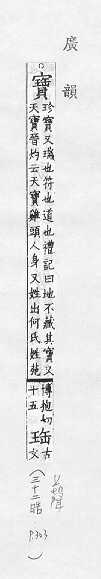 廣韻
寶
珍寶又瑞也符也道也禮記曰地不藏其寶又
天寶晉灼云天寶雞頭人身又姓出何氏姓苑
博抱切
十五
珤
古
文
(三十二晧
P.303)